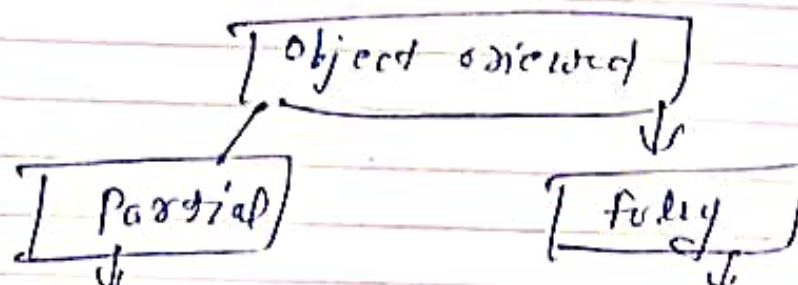 Object oriented
Partial fully